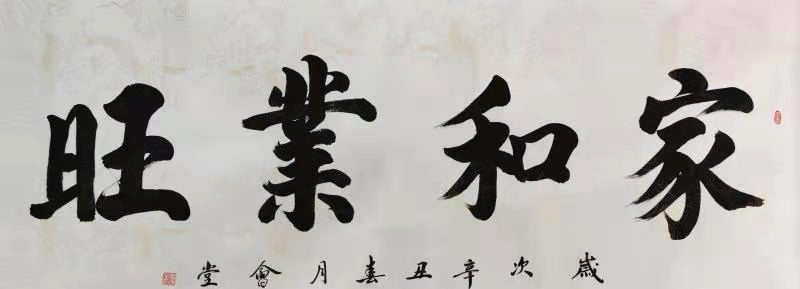 家和業旺
歲次辛丑春月會堂